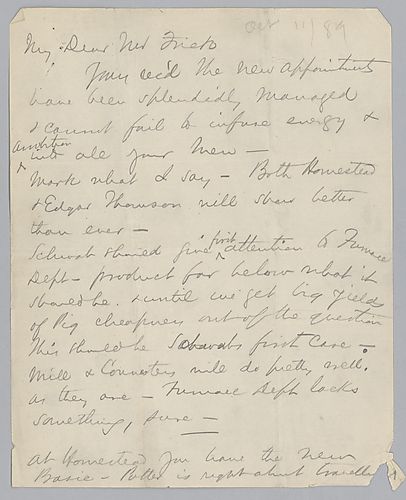 Oct 11/89
My Dear Mr Frick
Yours rec'd The new appointments
have been splendidly managed
& cannot fail to infuse energy &
ambition
into all your men —
Mark what I say — Both Homestead
& Edgar Thomson will show better
than ever —
Schwab should give first attention to Furnace
Dept — product far below what it
should be. & until we get big yield
of Pig cheapness out of the question
This should be Schwabs first Care —
Mill & Converters will do pretty well.
as they are — Furnace Dept lacks
something, sure —
At Homestead you have the new
Basic — Potter is right about